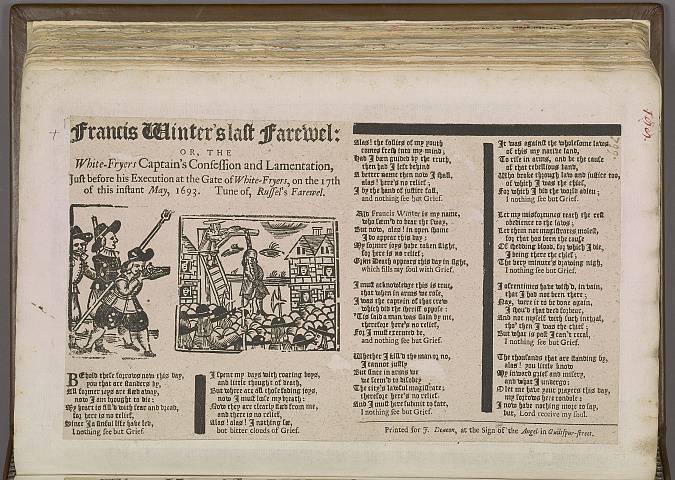 Francis Winter's last Farewel:
OR, THE
White-Fryers Captain's Confession and Lamentation,
Just before his Execution at the Gate of White-Fryers, on the 17th
of this instant May, 1693. Tune of, Russel's Farewel.
BEhold these sorrows now this day,
you that are standers by,
All former joys are fled away,
now I am brought to die:
My heart is fill'd with fear and dread,
for here is no relief,
Since I a sinful life have led,
I nothing see but Grief.
I spent my days with roaring boys,
and little thought of death,
But where are all those fading joys,
now I must lose my breath:
Now they are clearly fled from me,
and there is no relief,
Alas! alas! I nothing see,
but bitter clouds of Grief.
Alas! the follies of my youth
comes fresh into my mind;
Had I been guided by the truth,
then had I left behind
A better name then now I shall,
alas! here's no relief;
I by the hand of justice fall,
and nothing see but Grief.
Ah Francis Winter is my name,
who seem'd to bear the sway,
But now, alas! in open shame
I do appear this day:
My former joys have taken flight,
for here is no relief;
Grim Death appears this day in sight,
which fills my soul with Grief.
I must acknowledge this is true,
that when in arms we rose,
I was the captain of that crew
which did the sheriff oppose:
'Tis said a man was slain by me,
therefore here's no relief,
For I must executed be,
and nothing see but Grief.
Whether I kill'd the man or no,
I cannot justly
But since in arms we
we seem'd to disobey
The city's lawful magistrate;
therefore here's no relief,
And I must here submit to fate,
I nothing see but Grief.
It was against the wholesome laws
of this my native land,
To rise in arms, and be the cause
of that rebellious band,
Who broke through law and justice too,
of which I was the chief,
For which I did the world adieu;
I nothing see but Grief.
Let my misfortunes teach the rest
obedience to the laws;
Let them not magistrates molest,
for that has been the cause
Of shedding blood, for which I die,
I being there the chief;
The very minute's drawing nigh,
I nothing see but Grief.
I oftentimes have wish'd, in vain,
that I had not been there;
Nay, were it to be done again,
I shou'd that deed forbear,
And not myself with such intrual,
tho' when I was the chief;
But what is past I can't recal,
I nothing see but Grief.
The thousands that are standing by,
alas! you little know
My inward grief and misery,
and what I undergo:
O let me have your prayers this day,
my sorrows here condole:
I now have nothing more to say,
but, Lord receive my soul.
Printed for J. Deacon, at the Sign of the Angel in Guiltspur-street.